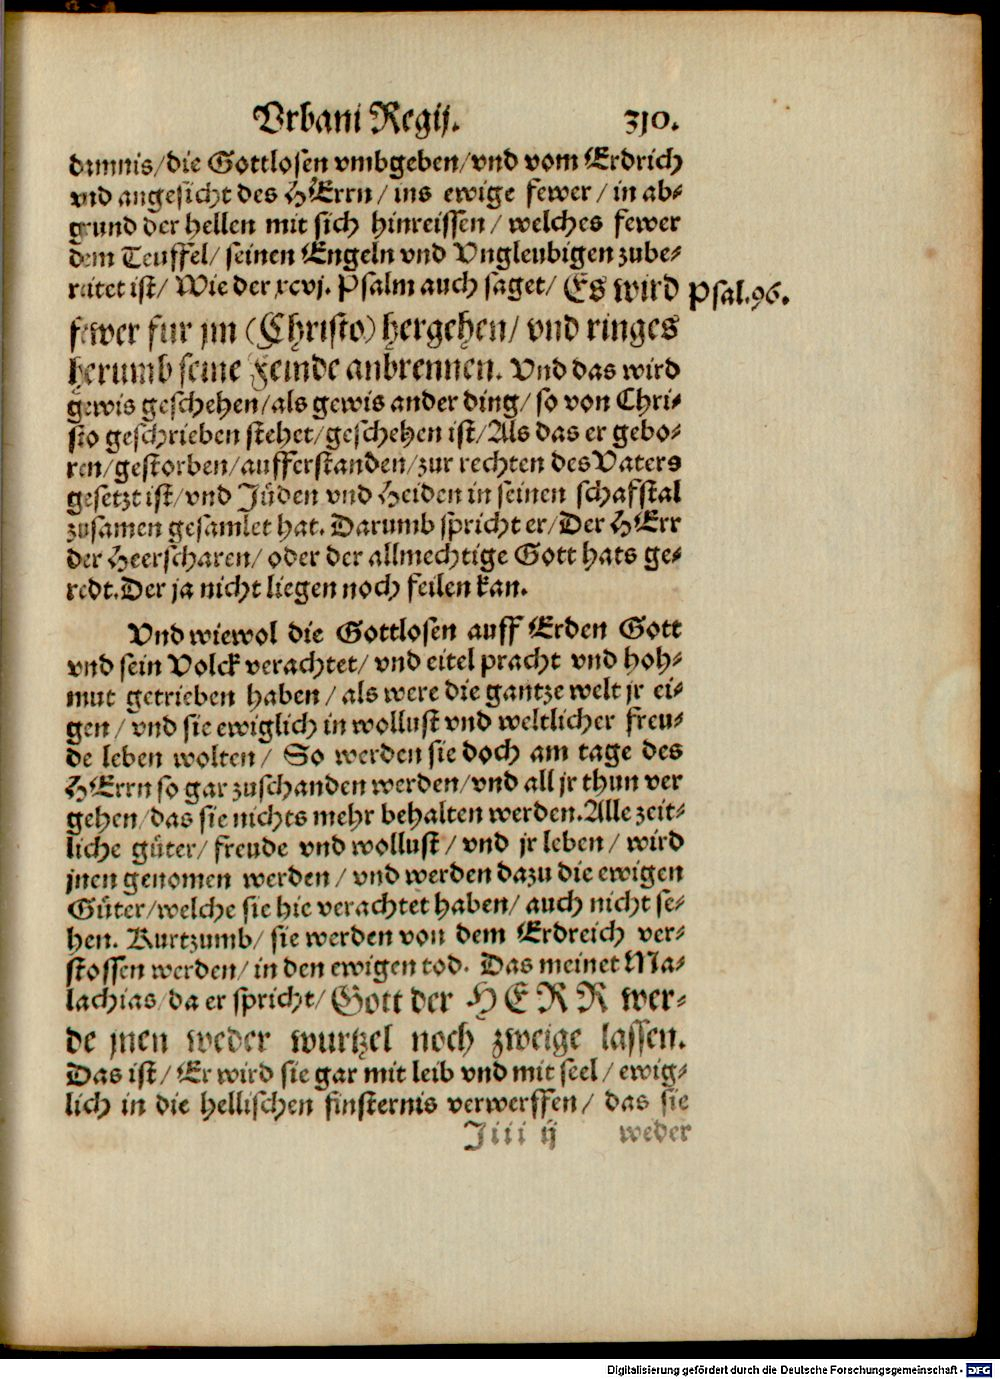 Vrbani Regij. 310.
damnis/die Gottlosen vmbgeben/vnd vom Erdrich
vnd angesicht des HErrn/ ins ewige fewer/ in ab-
grund der hellen mit sich hinreissen/ welches fewer
dem Teuffel/ seinen Engeln vnd Vngleubigen zube-
reitet ist/ Wie der xcvj. Psalm auch saget/ Es wird
Psal.96.
fewer fur jm (Christo) hergehen/ vnd ringes
herumb seine Feinde anbrennen. Vnd das wird
gewis geschehen/als gewis ander ding/ so von Chri-
sto geschrieben stehet/geschehen ist/Als das er gebo-
ren/gestorben/aufferstanden/zur rechten des Vaters
gesetzt ist/vnd Jüden vnd Heiden in seinen schafstal
zusamen gesamlet hat. Darumb spricht er/Der HErr
der Heerscharen/ oder der allmechtige Gott hats ge-
redt.Der ja nicht liegen noch feilen kan.
Vnd wiewol die Gottlosen auff Erden Gott
vnd sein Volck verachtet/ vnd eitel pracht vnd hoh-
mut getrieben haben/ als were die gantze welt jr ei-
gen/ vnd sie ewiglich in wollust vnd weltlicher freu-
de leben wolten/ So werden sie doch am tage des
HErrn so gar zuschanden werden/vnd all jr thun ver
gehen/das sie nichts mehr behalten werden.Alle zeit-
liche güter/ freude vnd wollust/ vnd jr leben/ wird
jnen genomen werden/ vnd werden dazu die ewigen
Güter/welche sie hie verachtet haben/ auch nicht se-
hen. Kurtzumb/ sie werden von dem Erdreich ver-
stossen werden/ in den ewigen tod. Das meinet Ma-
lachias/da er spricht/ Gott der HERR wer-
de jnen weder wurtzel noch zweige lassen.
Das ist/ Er wird sie gar mit leib vnd mit seel/ ewig-
lich in die hellischen finsternis verwerffen/ das sie
Jiii ij weder
Digitalisierung gefördert durch die Deutsche Forschungsgemeinschaft - DFG